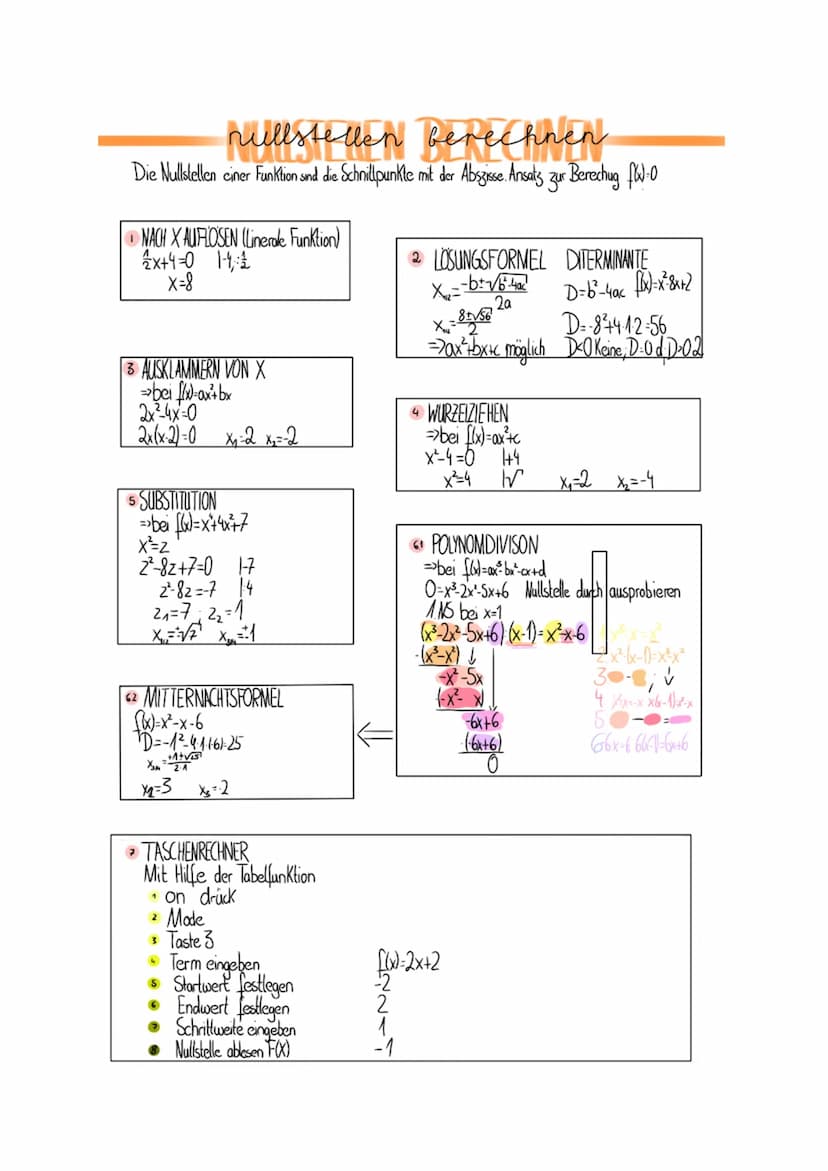 nullstellen berechnen
NULLSTELLEN BERECHNEN
Die Nullstellen einer Funktion sind die Schnittpunkte mit der Abszisse. Ansatz zur Berechug f(x)=0
1 NACH X AUFLÖSEN (Linerale Funktion)
½x+4=0 |-4, :½
x=8
2 LÖSUNGSFORMEL DITERMINANTE
X₁,₂=-b±√b²-4ac/2a D=b²-4ac f(x)=x²-8x+2
X₁,₂=8±√56/2 D=-8²+4·1·2=56
=>ax²+bx+c möglich D<0 Keine, D=0 d, D>0 2
3 AUSKLAMMERN VON X
=>bei f(x)=ax²+bx
2x²-4x=0
2x(x-2)=0 x₁=2 x₂=-2
4 WURZELZIEHEN
=>bei f(x)=ax²+c
x²-4=0 |+4
x²=4 |√ x₁=2 x₂=-4
5 SUBSTITUTION
=>bei f(x)=x⁴+4x²+7
x²=z
z²-8z+7=0 |-7
z²-8z=-7 |4
z₁=7; z₂=1
x₁,₂=±√7 x₃,₄=±1
6.1 POLYNOMDIVISON
=>bei f(x)=ax³-bx²-cx+d
0=x³-2x²-5x+6 Nullstelle durch ausprobieren
1 NS bei x=1
(x³-2x²-5x+6):(x-1)=x²-x-6
-(x³-x²)
-x²-5x
(-x²- x)
-6x+6
(-6x+6)
0
2. x²·(x-1)=x³-x²
3 - ; ↓
4
5 - =
6
6.2 MITTERNACHTSFORMEL
f(x)=x²-x-6
D=-1²-4·1·(-6)=25
x₃,₄=+1±√25/2·1
x₂=3 x₃=-2
7 TASCHENRECHNER
Mit Hilfe der Tabelfunktion
1 on drück
2 Mode
3 Taste 3
4 Term eingeben f(x)=2x+2
5 Startwert festlegen -2
6 Endwert festlegen 2
7 Schrittweite eingeben 1
8 Nullstelle ablesen F(X) -1